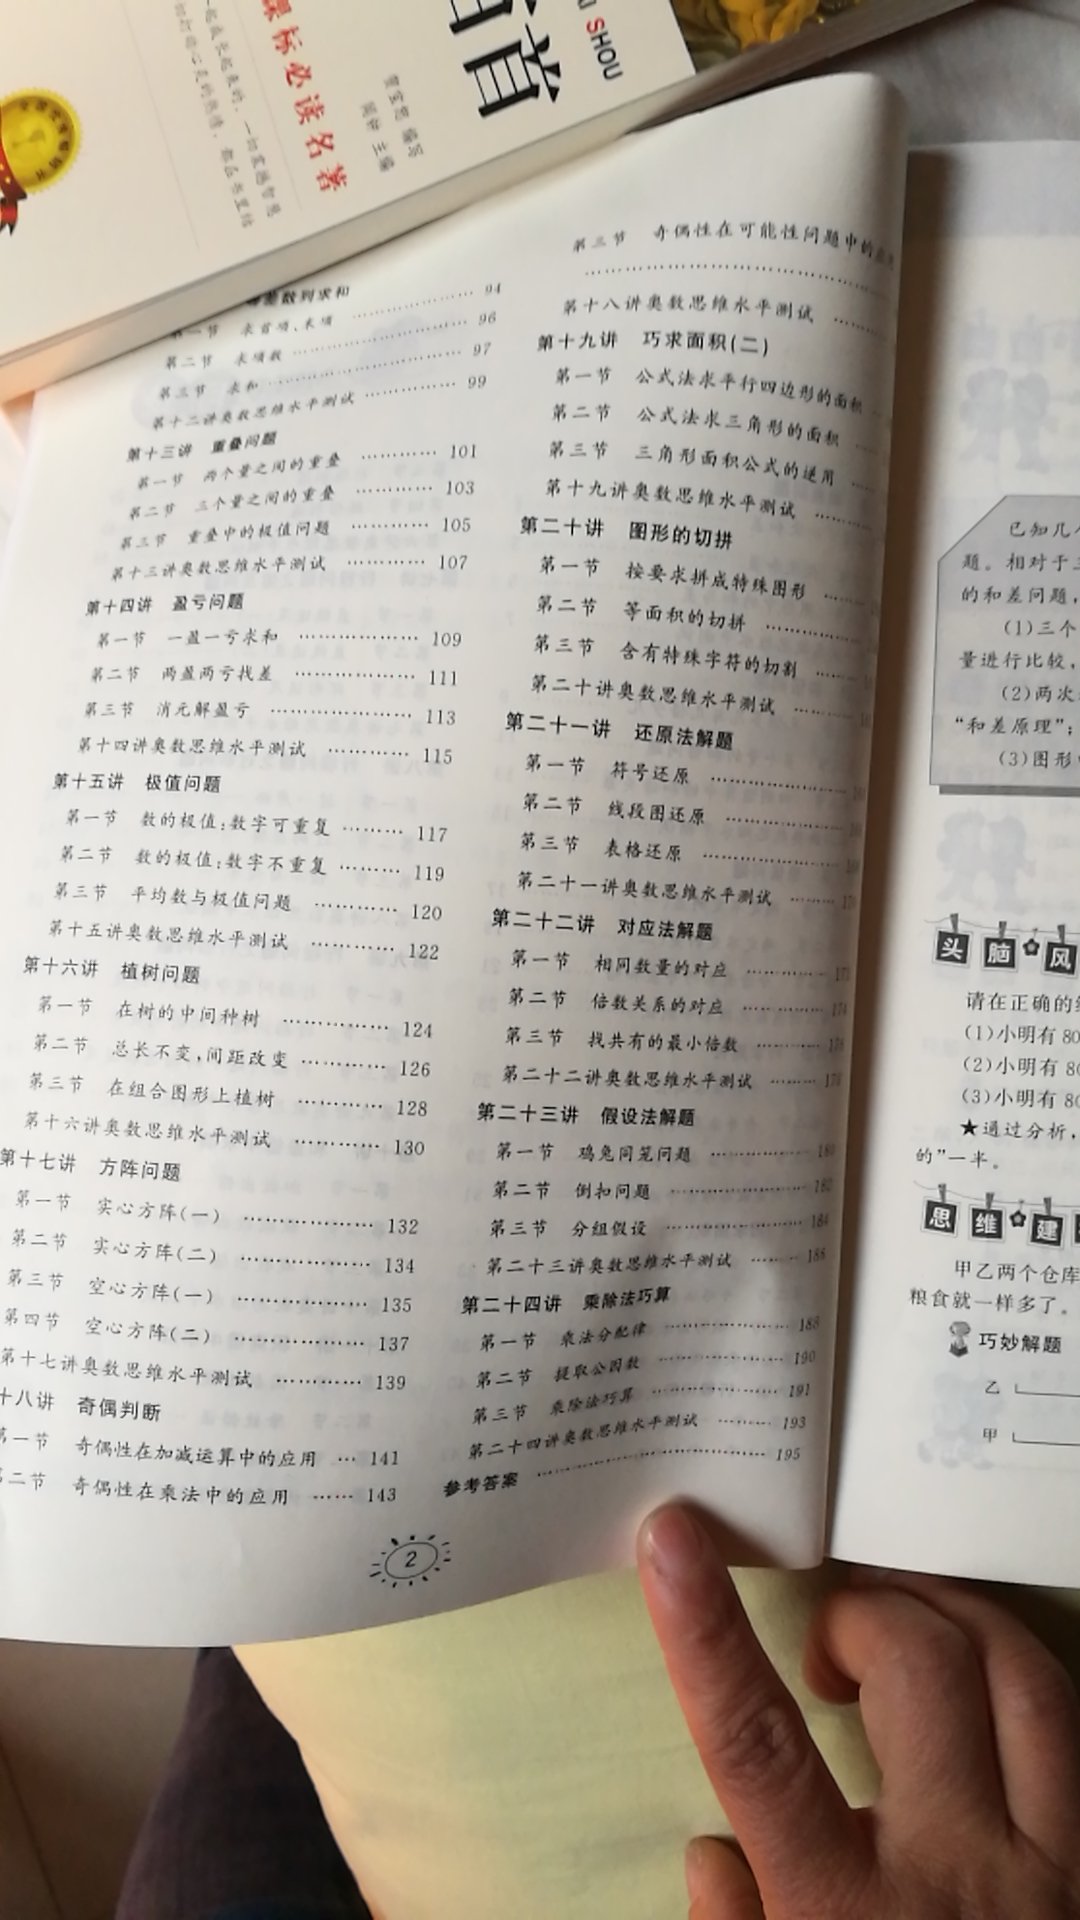 SHOU
首
课标必读名著
编写
主编
等差数列求和
第一节 求首项、末项 ………… 94
第二节 求项数 ………… 96
第三节 求和 ………… 97
第十二讲奥数思维水平测试 ………… 99
第十三讲 重叠问题
第一节 两个量之间的重叠 ………… 101
第二节 三个量之间的重叠 ………… 103
第三节 重叠中的极值问题 ………… 105
第十三讲奥数思维水平测试 ………… 107
第十四讲 盈亏问题
第一节 一盈一亏求和 ………… 109
第二节 两盈两亏找差 ………… 111
第三节 消元解盈亏 ………… 113
第十四讲奥数思维水平测试 ………… 115
第十五讲 极值问题
第一节 数的极值:数字可重复 ……… 117
第二节 数的极值:数字不重复 ……… 119
第三节 平均数与极值问题 ………… 120
第十五讲奥数思维水平测试 ………… 122
第十六讲 植树问题
第一节 在树的中间种树 ………… 124
第二节 总长不变,间距改变 ……… 126
第三节 在组合图形上植树 ………… 128
第十六讲奥数思维水平测试 ………… 130
第十七讲 方阵问题
第一节 实心方阵(一) ………… 132
第二节 实心方阵(二) ………… 134
第三节 空心方阵(一) ………… 135
第四节 空心方阵(二) ………… 137
第十七讲奥数思维水平测试 ………… 139
十八讲 奇偶判断
第一节 奇偶性在加减运算中的应用 … 141
第二节 奇偶性在乘法中的应用 …… 143
第三节 奇偶性在可能性问题中的应
第十八讲奥数思维水平测试 ……
第十九讲 巧求面积(二)
第一节 公式法求平行四边形的面积
第二节 公式法求三角形的面积 …
第三节 三角形面积公式的逆用 ……
第十九讲奥数思维水平测试 ……
第二十讲 图形的切拼
第一节 按要求拼成特殊图形 ……
第二节 等面积的切拼 …………
第三节 含有特殊字符的切割 ……
第二十讲奥数思维水平测试 ………
第二十一讲 还原法解题
第一节 符号还原 …………
第二节 线段图还原 …………
第三节 表格还原 …………
第二十一讲奥数思维水平测试 ………
第二十二讲 对应法解题
第一节 相同数量的对应 …………
第二节 倍数关系的对应 …………
第三节 找共有的最小倍数 …………
第二十二讲奥数思维水平测试 ………
第二十三讲 假设法解题
第一节 鸡兔同笼问题 ………… 180
第二节 倒扣问题 ………… 182
第三节 分组假设 ………… 184
第二十三讲奥数思维水平测试 ……… 186
第二十四讲 乘除法巧算
第一节 乘法分配律 ………… 188
第二节 提取公因数 ………… 190
第三节 乘除法巧算 ………… 191
第二十四讲奥数思维水平测试 ……… 193
参考答案 ………… 195
2
已知几
题。相对于三
的和差问题,
(1)三个
量进行比较,
(2)两次
“和差原理”;
(3)图形
头脑风
请在正确的
(1)小明有80
(2)小明有80
(3)小明有80
★通过分析,
的”一半。
思维建
甲乙两个仓库
粮食就一样多了。
巧妙解题
乙
甲